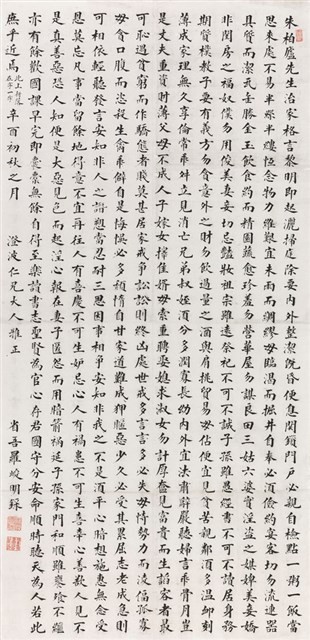 朱柏廬先生治家格言黎明即起灑掃庭除要內外整潔既昏便息關鎖門戶必親自檢點一粥一飯當
思來處不易半絲半縷恆念物力維艱宜未雨而綢繆毋臨渴而掘井自奉必須儉約宴客切勿流連器
具質而潔瓦缶勝金玉飲食約而精園蔬愈珍羞勿營華屋勿謀良田三姑六婆實淫盜之媒婢美妾嬌
非閨房之福奴僕勿用俊美妻妾切忌豔妝祖宗雖遠祭祀不可不誠子孫雖愚經書不可不讀居身務
期質樸教子要有義方勿貪意外之財勿飲過量之酒與肩挑貿易毋佔便宜見貧苦親鄰須多溫卹刻
薄成家理無久享倫常乖舛立見消亡兄弟叔姪須分多潤寡長幼內外宜法肅辭嚴聽婦言乖骨肉豈
是丈夫重貲財薄父母不成人子嫁女擇佳婿毋索重聘娶媳求淑女勿計厚奩見富貴而生諂容者最
可恥遇貧窮而作驕態者賤莫甚居家戒爭訟訟則終凶處世戒多言言多必失毋恃勢力而凌偪孤寡
毋貪口腹而恣殺生禽乖僻自是悔悞必多頹惰自甘家道難成狎暱惡少久必受其累屈志老成急則
可相依輕聽發言安知非人之譖愬當忍耐三思因事相爭安知非我之不是須平心暗想施惠無念受
恩莫忘凡事當留餘地得意不宜再往人有喜慶不可生妒忌心人有禍患不可生喜幸心善欲人見不
是真善惡恐人知便是大惡見色而起淫心報在妻女匿怨而用暗箭禍延子孫家門和順雖饔飧不繼
亦有餘歡國課早完即囊橐無餘自得至樂讀書志聖賢為官心存君國守分安命順時聽天為人若此
庶乎近焉 辛酉初秋之月 澄波仁兄大人雅正 省吾羅峻明